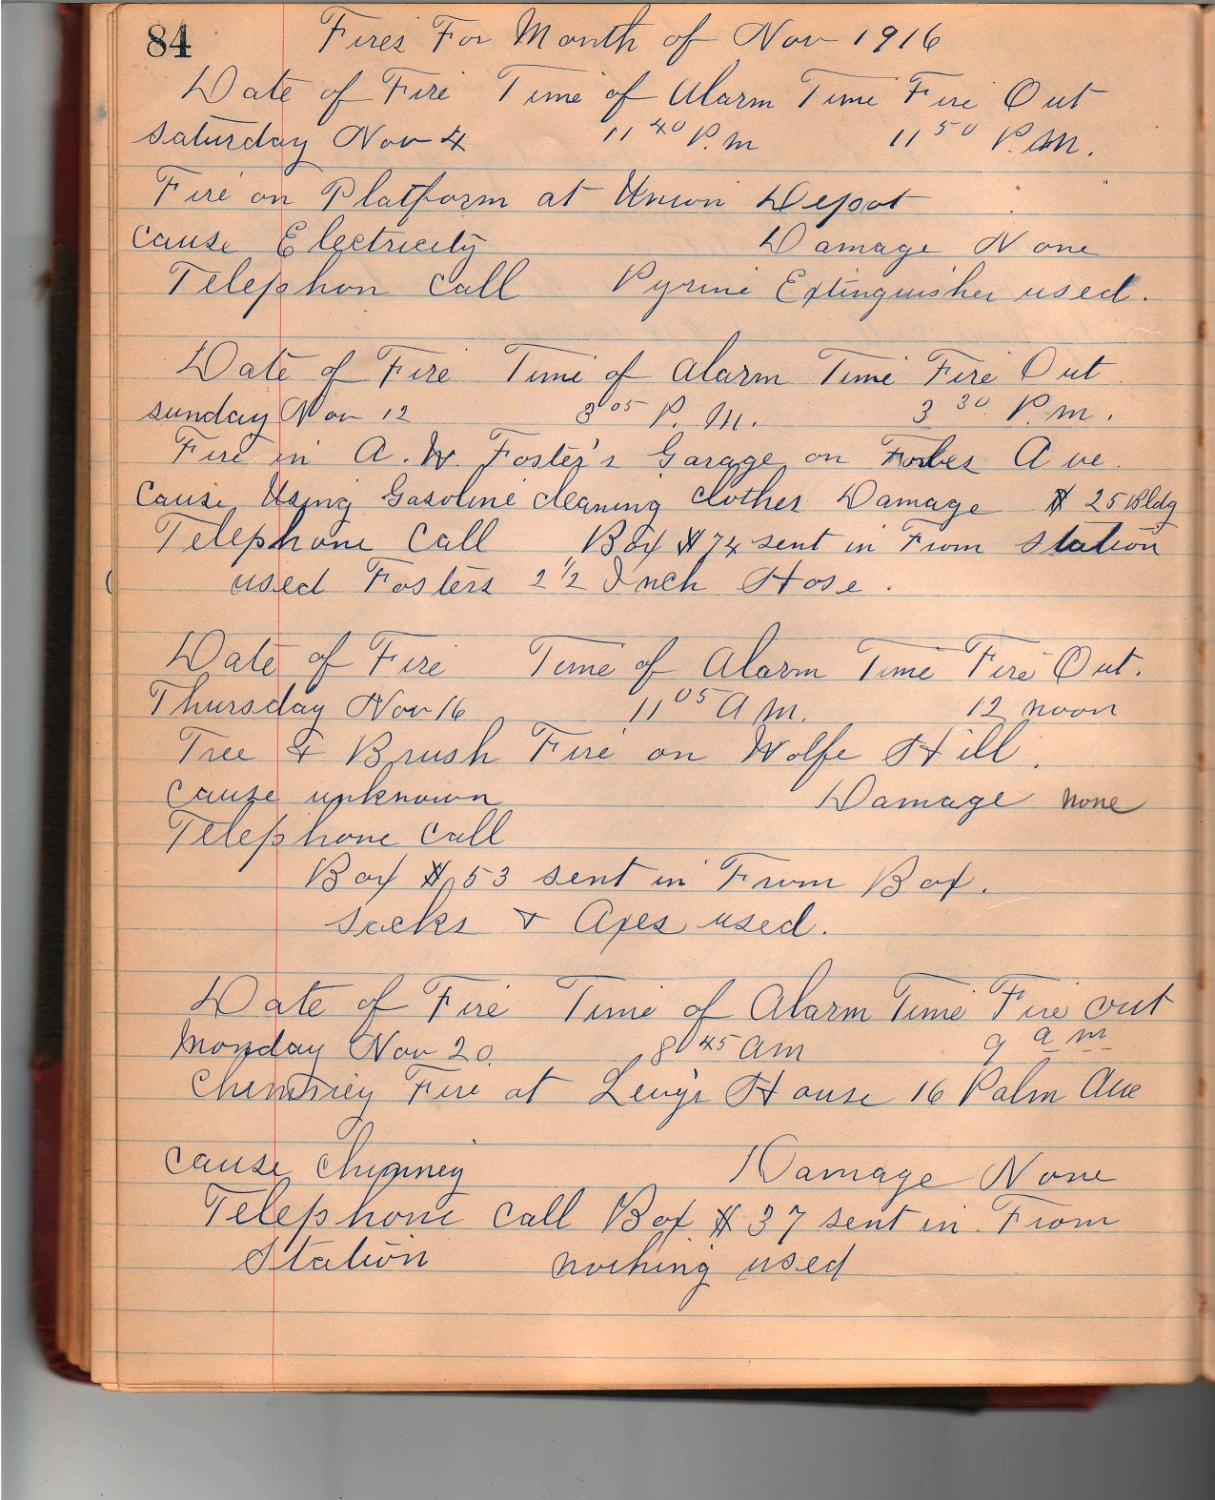 84
Fires For Month of Nov 1916
Date of Fire Time of Alarm Time Fire Out
Saturday Nov 4 11 40 P.m 11 50 P.M.
Fire on Platform at Union Depot
cause Electricity Damage None
Telephon call Pyrine Extinguisher used.
Date of Fire Time of Alarm Time Fire Out
Sunday Nov 12 3 05 P.M. 3 30 P.m.
Fire in A. W. Foster's Garage on Forbes Ave.
Cause Using Gasoline cleaning clothes Damage $ 25 Bldg
Telephone Call Box # 74 sent in From Station
used Fosters 2 1/2 Inch Hose.
Date of Fire Time of Alarm Time Fire Out.
Thursday Nov 16 11 05 A M. 12 noon
Tree & Brush Fire on Wolfe Hill.
cause unknown Damage none
Telephone call
Box # 53 sent in From Box.
Sacks & Axes used.
Date of Fire Time of Alarm Time Fire out
Monday Nov 20. 8 45 am 9 a m
Chimney Fire at Levy's House 16 Palm Ave
cause chimney Damage None
Telephone call Box # 37 sent in From
Station nothing used